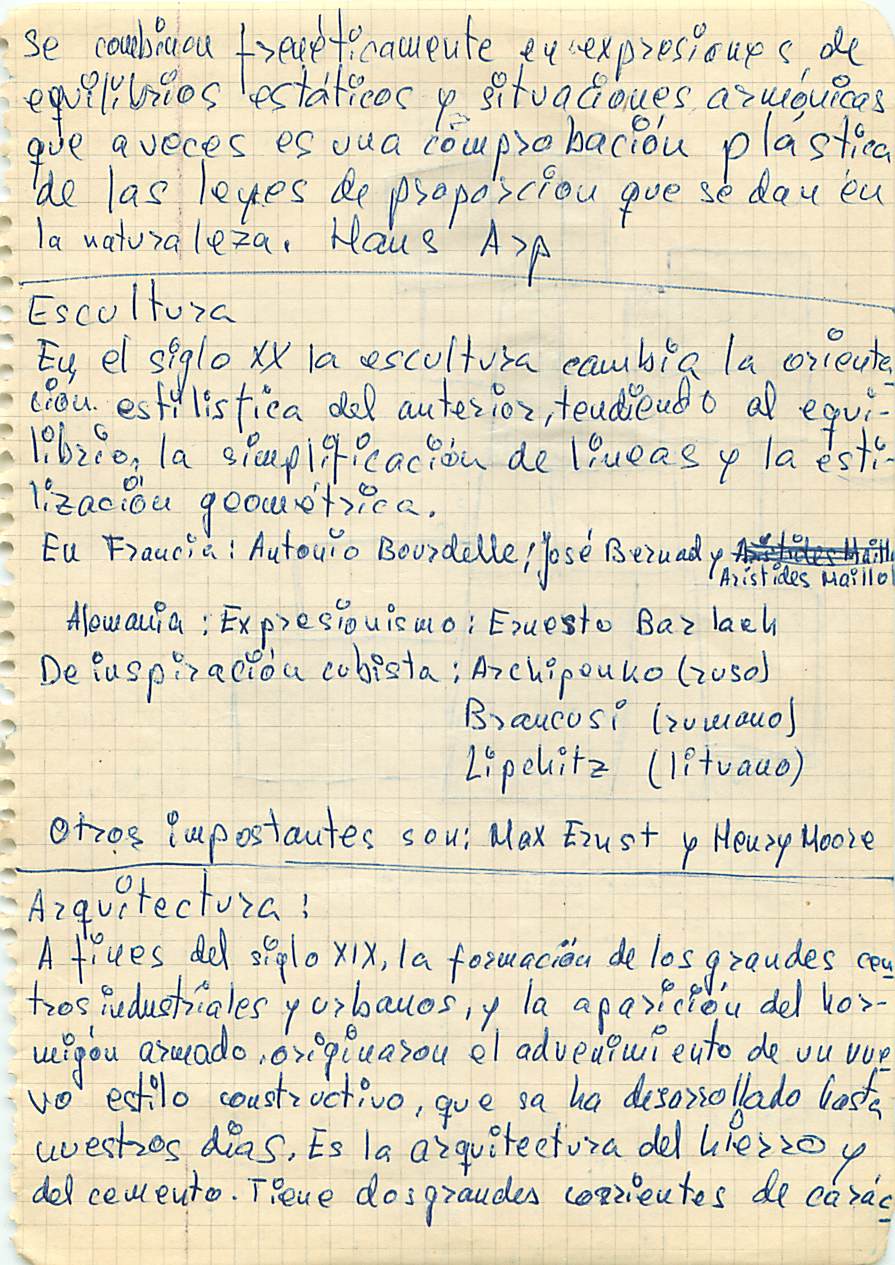 se combinan frenéticamente en expresiones de
equilibrios estáticos y situaciones armónicas
que aveces es una comprobación plástica
de las leyes de proporcion que se dan en
la naturaleza. Hans Arp
Escultura
En el siglo XX la escultura cambia la orienta
ción estilistica del anterior, tendiendo al equi-
librio, la simplificación de líneas y la esti-
lización geométrica.
En Francia: Antonio Bourdelle; José Bernad y Aristides Maillol
Aristides Maillol
Alemania: Expresionismo: Ernesto Barlach
De inspiración cubista: Archipenko (ruso)
Brancusi (rumano)
Lipchitz (lituano)
Otros importantes son: Max Ernst y Henry Moore
Arquitectura:
A fines del siglo XIX, la formación de los grandes cen
tros industriales y urbanos, y la aparición del hor-
migón armado, originaron el advenimiento de un nue
vo estilo constructivo, que sa ha desarrollado hasta
nuestros días. Es la arquitectura del hierro y
del cemento. Tiene dos grandes corrientes de carác